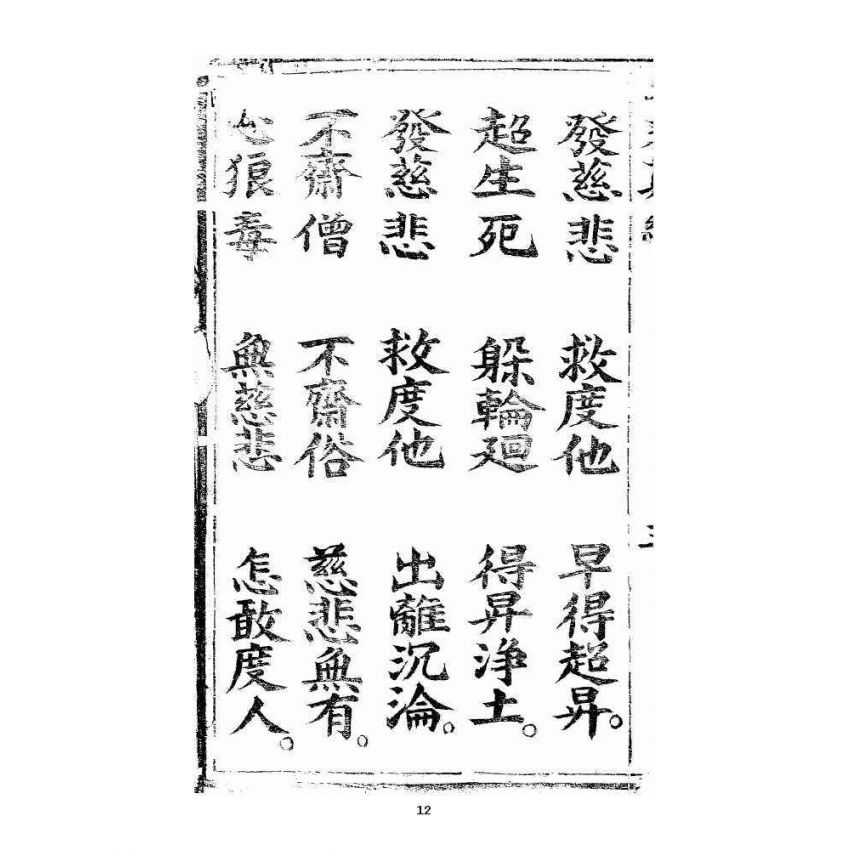 發慈悲 救度他 早得超昇。
超生死 躲輪廻 得昇淨土。
發慈悲 救度他 出離沉淪。
不齋僧 不齋俗 慈悲無有。
心狼毒 無慈悲 怎敢度人。
12